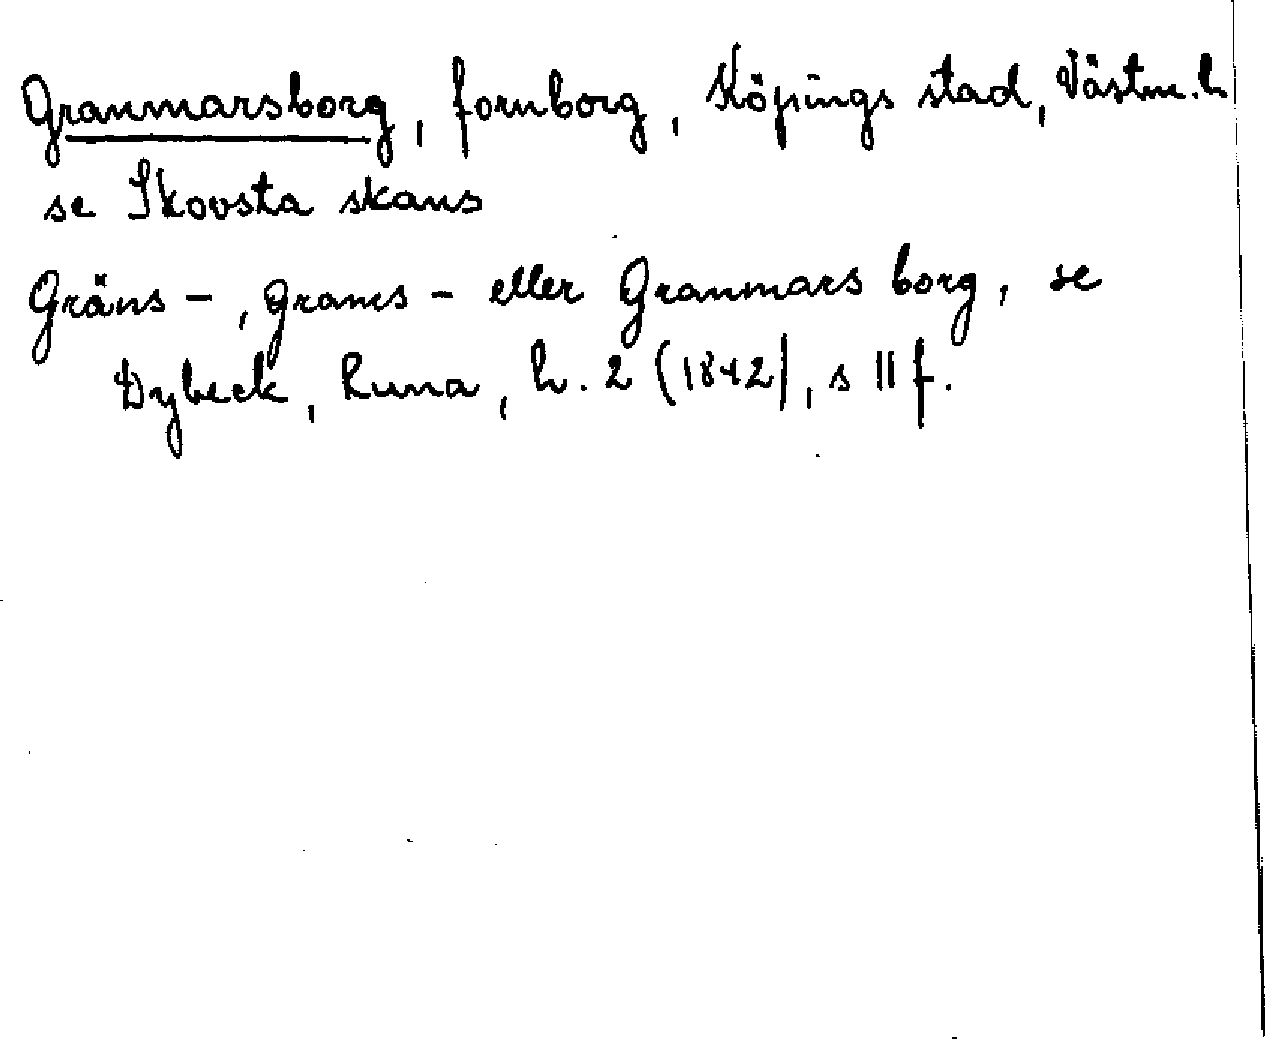 Granmarsborg, fornborg, Köpings stad, Västm. l.
se Skovsta skans
Gräns-, Grams- eller Granmars borg, se
Dybeck, Runa, h. 2 (1842), s 11 f.